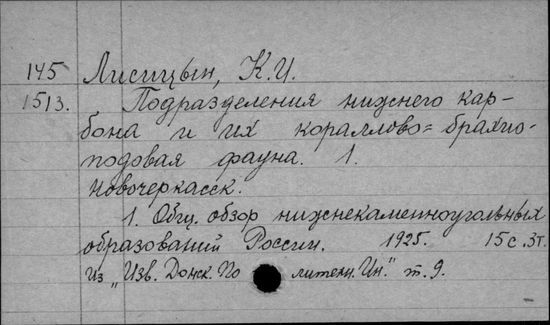 145 Лисицын, К.И.
1513. Подразделения нижнего кар-
бона и их кораллово=брахио-
подовая фауна. 1.
Новочеркасск.
1. Общ. обзор нижнекаменноугольных
образований России. 1925. 15 с. 3т.
из "Изв. Донск. По литехн. Ин." т. 9.